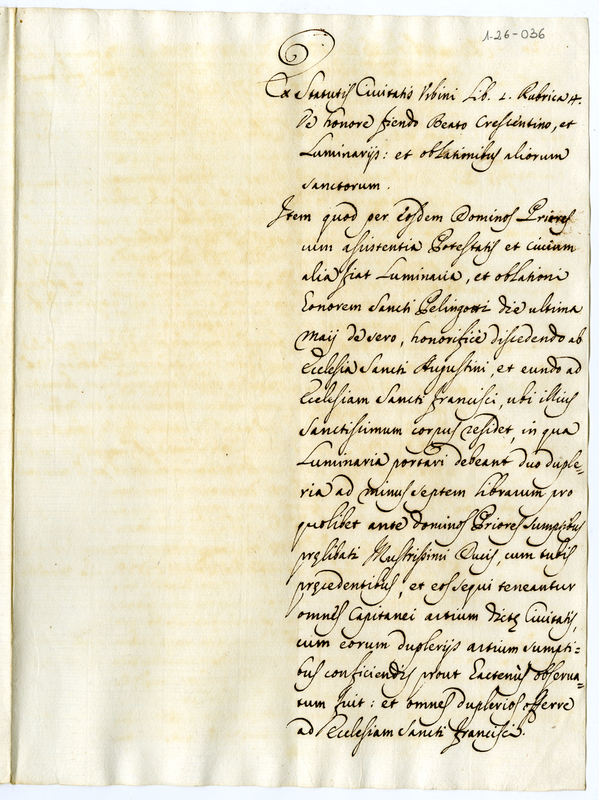 1-26-036
Ex Statutis Civitatis Urbini Lib. 1. Rubrica 4.
De honore fiendo Beato Crescentino, et
Luminarijs: et oblationibus aliorum
sanctorum.
Item quod per eosdem Dominos Priores
cum assistentia Potestatis et civium
alia fiat Luminaria, et oblationi
honorem Sancti Pelingotti die ultima
Maij de sero, honorificè discedendo ab
Ecclesia Sancti Augustini, et eundo ad
Ecclesiam Sancti Francisci, ubi illius
sanctissimum corpus residet, in qua
Luminaria portari debeant duo duple=
ria ad minus septem librarum pro
quolibet ante dominos Priores sumptibus
pręlibati Illustrissimi Ducis, cum tubis
pręcedentibus, et eos sequi teneantur
omnes Capitanei artium dictę Civitatis,
cum eorum duplerijs artium sumpti=
bus conficiendis prout hactenus observa=
tum fuit: et omnes duplerios offerre
ad Ecclesiam Sancti Francisci.